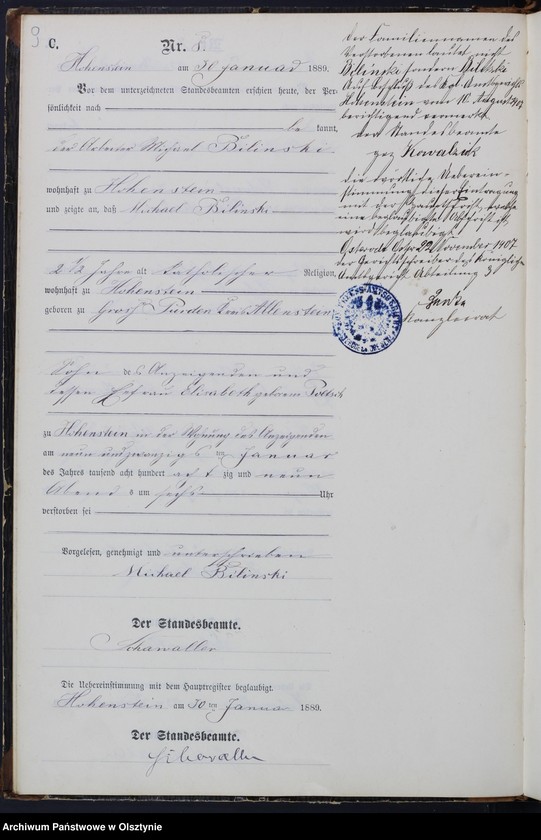 C.
Nr. 8.
Hohenstein am 30 Januar 1889.
Vor dem unterzeichneten Standesbeamten erschien heute, der Per-
sönlichkeit nach
be kannt,
der Arbeiter Michael Bilinski
wohnhaft zu Hohenstein
und zeigte an, daß Michael Bilinski
2 1/2 Jahre alt katholischer Religion,
wohnhaft zu Hohenstein
geboren zu Groß Purden Kreis Allenstein
Sohn des Anzeigenden und
dessen Ehefrau Elisabeth geborene
zu Hohenstein in der Wohnung des Anzeigenden
am neun und zwanzigsten Januar
des Jahres tausend acht hundert acht zig und neun
Abends um sechs Uhr
verstorben sei
Vorgelesen, genehmigt und unterschrieben
Michael Bilinski
Der Standesbeamte.
Schawaller
Die Uebereinstimmung mit dem Hauptregister beglaubigt.
Hohenstein am 30 ten Januar 1889.
Der Standesbeamte.
Schawaller
der Familiennamen des
Verstorbenen lautet nicht
Bilinski sondern
Auf Beschluß des Kgl. Amtsgerichts
Hohenstein vom 10. August 1907
berichtigend vermerkt
der Standesbeamte
gez Kowalzik
die wörtliche Ueberein-
stimmung dieser Eintragung
mit der
eine beglaubigte Abschrift ist,
wird beglaubigt
Osterode Ostpr 22 November 1907
der Gerichtsschreiber des Königlichen
Amtsgerichts Abteilung 3
Kanzleirat
Archiwum Państwowe w Olsztynie